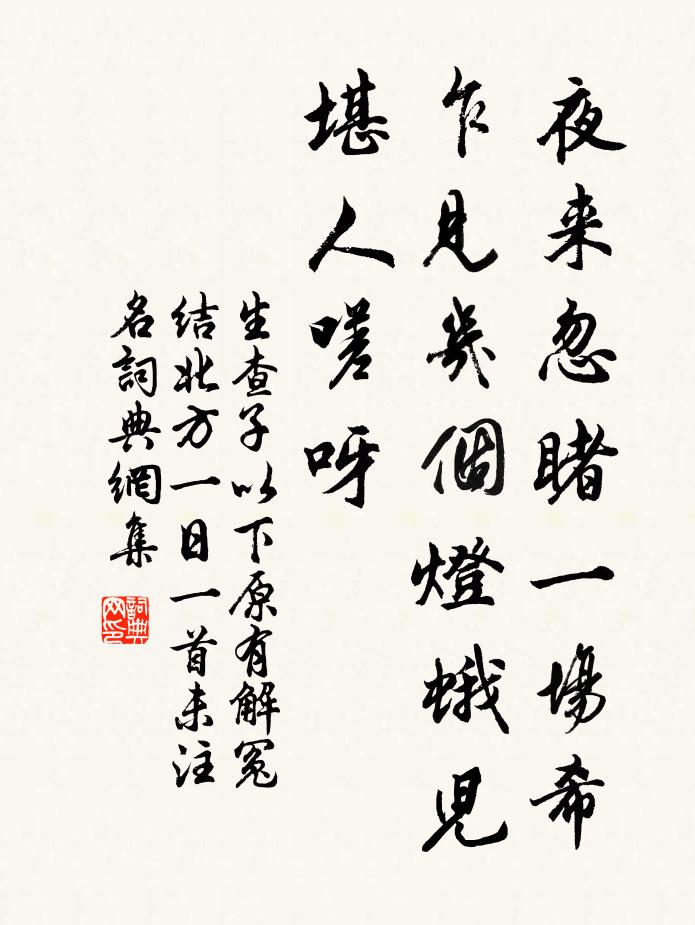 夜来忽睹一場希
乍見幾個燈蛾児
堪人嗟呀
生查子以下原有解冤
结北方一日一首未注
名詞典網集
詞典
网印